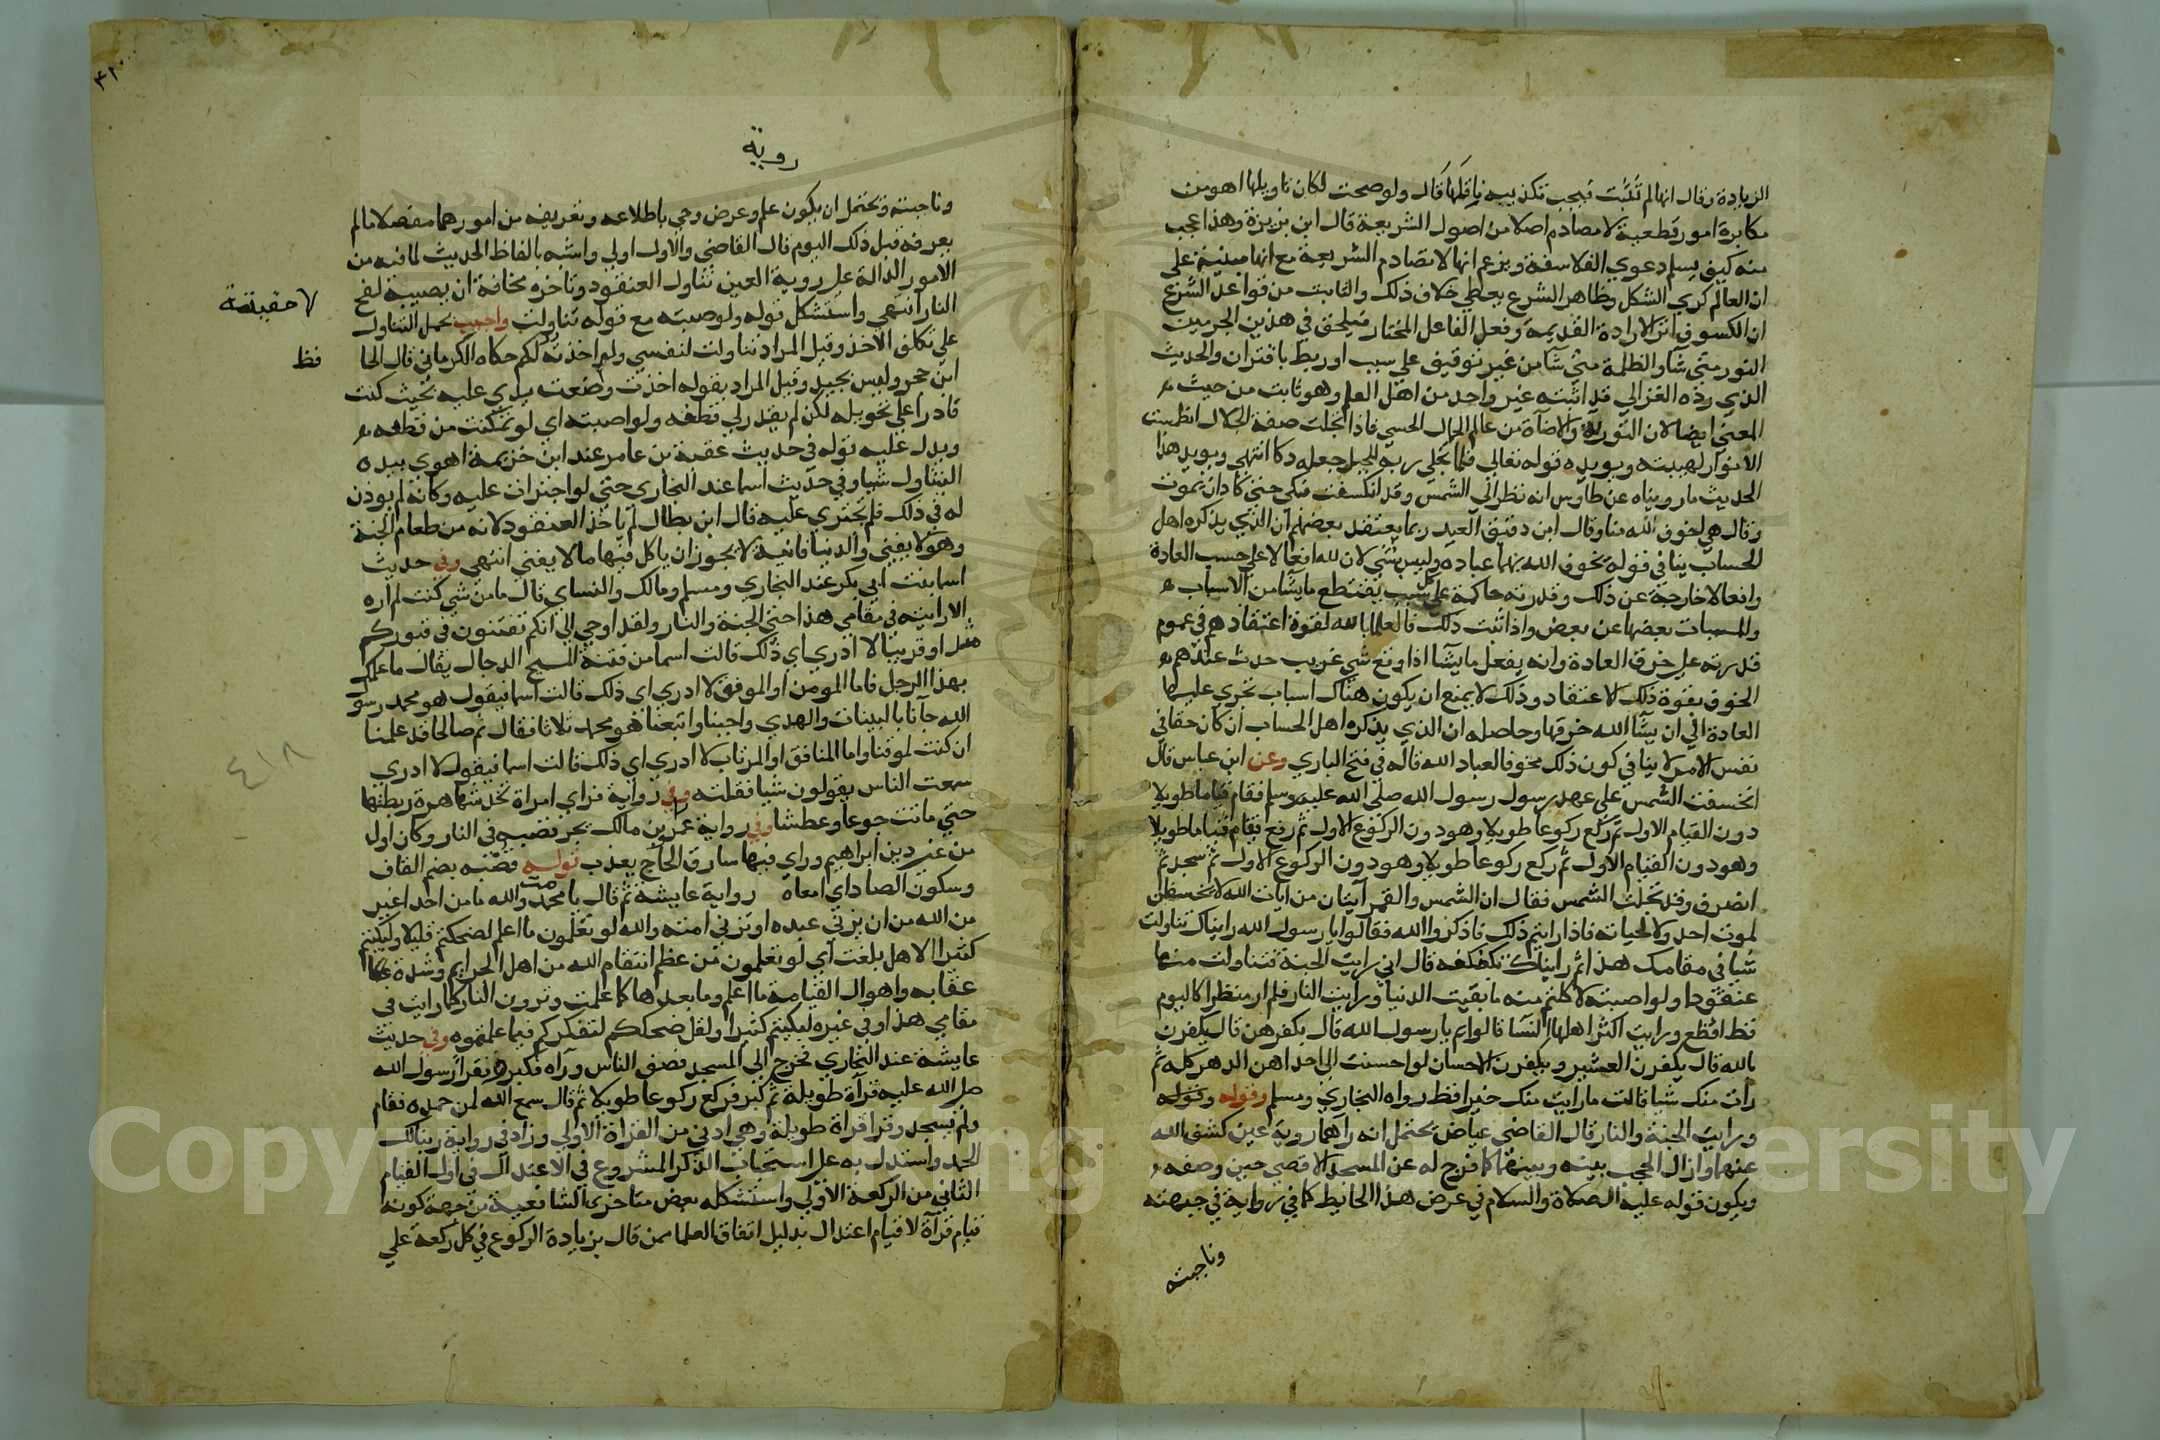 الزيادة وقال انها لم تثبت فيجب تكذيب ناقلها قال ولو صحت لكان تاويلها اهون من
مكابرة امور قطعية لا مصادم اصلا من اصول الشريعة قال ابن بزيزة وهذا عجب
منه كيف يسلم دعوي الفلاسفة ويزعم انها لا تصادم الشريعة مع انها مبنية علي
ان العالم كري الشكل وظاهر الشرع يعطي خلاف ذلك والثابت من قواعد الشرع
ان الكسوف اثر الارادة القديمة وفعل الفاعل المختار فيخلق في هذين الجرمين
النور متي شا والظلمة متي شا من غير توقيف علي سبب او ربط باقتران والحديث
الذي رده الغزالي قد اثبته غير واحد من اهل العلم وهو ثابت من حيث
المعني ايضا لان النورية والاضاة من عالم الجمال الحسي فاذا تجلت صفة الجلال انطمست
الانوار لهيبته ويويده قوله تعالي فلما تجلي ربه للجبل جعله دكا انتهي ويويد هذا
الحديث ما رويناه عن طاوس انه نظر الي الشمس وقد انكسفت فبكي حتي كاد ان يموت
وقال هي اخوف الله منا وقال ابن دقيق العيد ربما يعتقد بعضهم ان الذي يذكره اهل
الحساب ينافي قوله يخوف الله بهما عباده وليس بشي لان لله افعالا علي حسب العادة
وافعالا خارجة عن ذلك وقدرته حاكمة علي كل سبب يقتطع ما يشا من الاسباب
والمسببات بعضها عن بعض واذا ثبت ذلك فالعلما بالله لقوة اعتقادهم في عموم
قدرته علي خرق العادة وانه يفعل ما يشا اذا وقع شي غريب حدث عندهم
الخوف بقوة ذلك الاعتقاد وذلك لا يمنع ان يكون هناك اسباب تجري عليها
العادة الي ان يشا الله خرقها وحاصله ان الذي يذكره اهل الحساب ان كان حقا في
نفس الامر لا ينافي كون ذلك مخوفا لعباد الله قاله في فتح الباري وعن ابن عباس قال
انخسفت الشمس علي عهد رسول الله صلي الله عليه وسلم فقام قياما طويلا
دون القيام الاول ثم ركع ركوعا طويلا وهو دون الركوع الاول ثم رفع فقام قياما طويلا
وهو دون القيام الاول ثم ركع ركوعا طويلا وهو دون الركوع الاول ثم سجد ثم
انصرف وقد تجلت الشمس فقال ان الشمس والقمر آيتان من آيات الله لا يخسفان
لموت احد ولا لحياته فاذا رايتم ذلك فاذكروا الله فقالوا يا رسول الله رايناك تناولت
شيا في مقامك هذا ثم رايناك تكعكعه قال اني رايت الجنة فتناولت منها
عنقودا ولو اصبته لاكلتم منه ما بقيت الدنيا ورايت النار فلم ار منظرا كاليوم
قط افظع ورايت اكثر اهلها النسا قالوا بم يا رسول الله قال بكفرهن قال يكفرن
بالله قال يكفرن العشير ويكفرن الاحسان لو احسنت الي احداهن الدهر كله ثم
رات منك شيا قالت ما رايت منك خيرا قط رواه البخاري ومسلم وقوله وقوله
ورايت الجنة والنار قال القاضي عياض يحتمل انه رآهما روية عين كشف الله
عنهما وازال الحجب بينه وبينهما كما فرج له عن المسجد الاقصي حين وصفه
ويكون قوله عليه الصلاة والسلام في عرض هذا الحايط كما في رواية في جهته
وناحيته
روية
وناحيته ويحتمل ان يكون علم وعرض وحي باطلاعه وتعريفه من امورهما مفصلا ما لم
يعرفه قبل ذلك اليوم قال القاضي والاول اولي واشبه بالفاظ الحديث لما فيه من
الامور الدالة علي روية العين تناول العنقود وتاخره مخافة ان يصيبه لفح
النار انتهي واستشكل قوله ولو اصبته مع قوله تناولت واجيب بحمل التناول
علي تكلف الاخذ وقيل المراد تناولت لنفسي ولو اخذته لكم حكاه الكرماني قال الحا
لا حقيقة
فظ
ابن حجر وليس بجيد وقيل المراد بقوله اخذت وضعت يدي عليه بحيث كنت
قادرا علي تحويله لكن لم يقدر لي قطفه ولو اصبته اي لو تمكنت من قطفه
ويدل عليه قوله في حديث عقبة بن عامر عند ابن خزيمة اهوي بيده
ليتناول شيا وفي حديث اسما عند البخاري حتي لو اجترات عليه وكانه لم يوذن
له في ذلك فلم يجتري عليه قال ابن بطال لم ياخذ العنقود لانه من طعام الجنة
وهو لا يفني والدنيا فانية لا يجوز ان ياكل فيها ما لا يفني انتهي وفي حديث
اسما بنت ابي بكر عند البخاري ومسلم ومالك والنساي قال ما من شي كنت لم اره
الا رايته في مقامي هذا حتي الجنة والنار ولقد اوحي الي انكم تفتنون في قبوركم
مثل او قريبا لا ادري اي ذلك قالت اسما من فتنة المسيح الدجال يقال ما علمك
بهذا الرجل فاما المومن او الموقن لا ادري اي ذلك قالت اسما فيقول هو محمد رسول
الله جانا بالبينات والهدي واجبنا واتبعنا هو محمد ثلاثا فقال نم صالحا قد علمنا
ان كنت لموقنا واما المنافق او المرتاب لا ادري اي ذلك قالت اسما فيقول لا ادري
٤١٨
سمعت الناس يقولون شيا فقلته وفي رواية فراي امراة تخدشها هرة ربطتها
حتي ماتت جوعا وعطشا وفي رواية عمرو بن مالك يجر قصبه في النار وكان اول
من غير دين ابراهيم وراي فيها سارق الحاج يعذب قوله قصبه بضم القاف
وسكون الصاد اي امعاه رواية عايشة ثم قال يا امة محمد والله ما من احد اغير
من الله من ان يزني عبده او تزني امته والله لو تعلمون ما اعلم لضحكتم قليلا ولبكيتم
كثيرا الا هل بلغت اي لو تعلمون من عظم انتقام الله من اهل الجرايم وشدة
عقابه واهوال القيامة ما اعلم وما بعدها كما علمت وترون النار كما رايت في
مقامي هذا وفي غيره لبكيتم كثيرا ولقل ضحككم لتفكركم فيما علمتموه وفي حديث
عايشة عند البخاري فخرج الي المسجد فصف الناس ورآه فكبر فقرا رسول الله
صلي الله عليه قرآة طويلة ثم كبر فركع ركوعا طويلا ثم قال سمع الله لمن حمده فقام
ولم يسجد وقرا قراة طويلة وهي ادني من القراة الاولي وزاد في رواية ربنا لك
الحمد واستدل به علي استحباب الذكر المشروع في الاعتدال في اول القيام
الثاني من الركعة الاولي واستشكله بعض متاخري الشافعية من جهة كونه
قيام قرآة لا قيام اعتدال بدليل اتفاق العلما ممن قال بزيادة الركوع في كل ركعة علي
Copyright © King Saud University